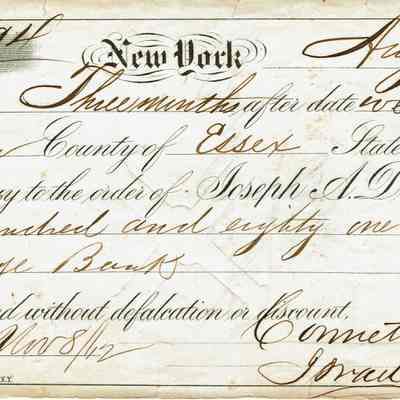 New York
Three months after date we
County of Essex State
to the order of Joseph A. D
hundred and eighty one
Bank
without defalcation or discount.
Nov 8/
N.Y.